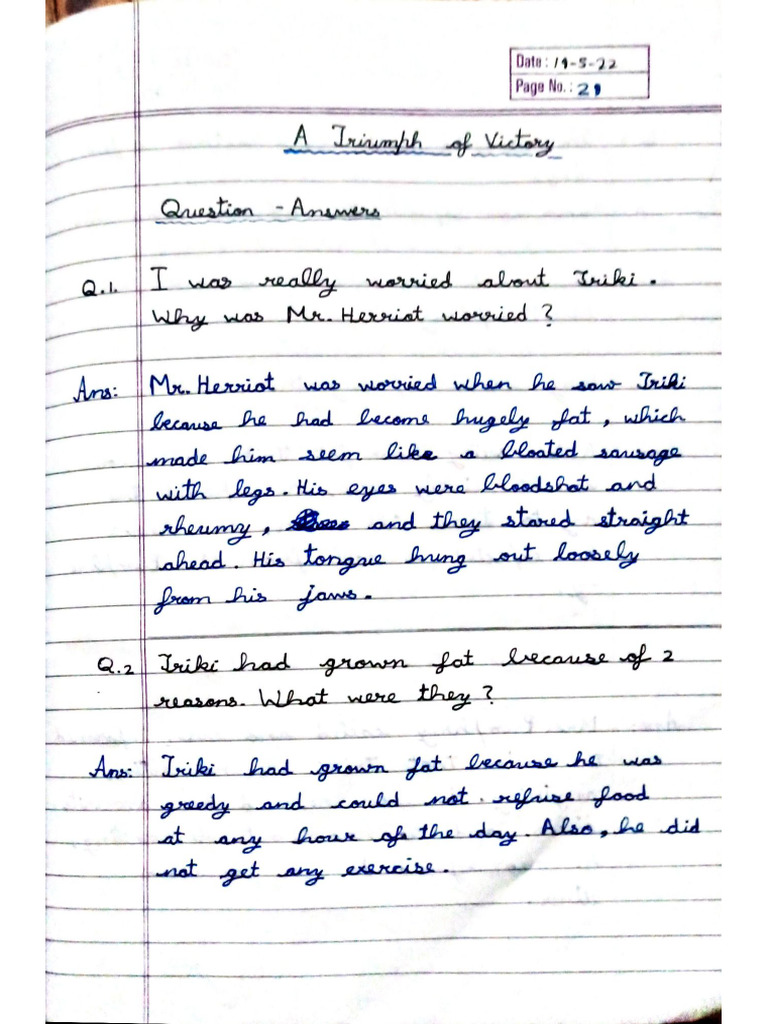 Date: 19-5-22
Page No.: 21
A Triumph of Victory
Question - Answers
Q.1. I was really worried about Triki.
Why was Mr. Herriot worried?
Ans: Mr. Herriot was worried when he saw Triki
because he had become hugely fat, which
made him seem like a bloated sausage
with legs. His eyes were bloodshot and
rheumy, and they stared straight
ahead. His tongue hung out loosely
from his jaws.
Q.2 Triki had grown fat because of 2
reasons. What were they?
Ans: Triki had grown fat because he was
greedy and could not refuse food
at any hour of the day. Also, he did
not get any exercise.